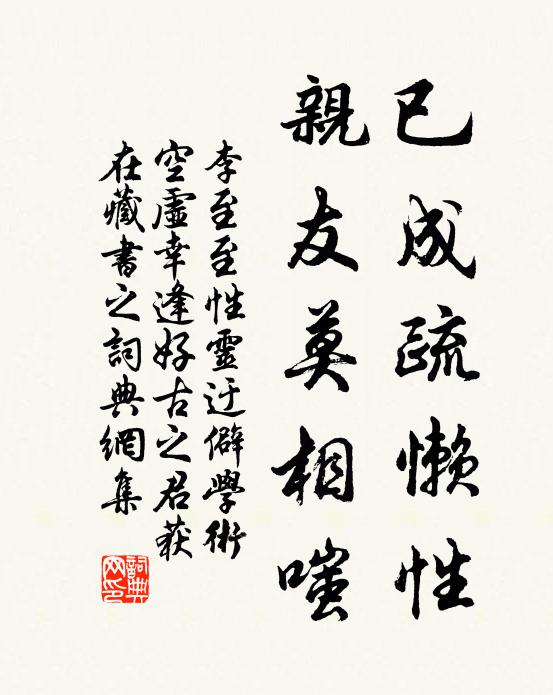 已成疏懒性
親友莫相嗤
李至至性靈迂僻學術
空虛幸逢好古之君获
在藏書之詞典網集
詞典
网印